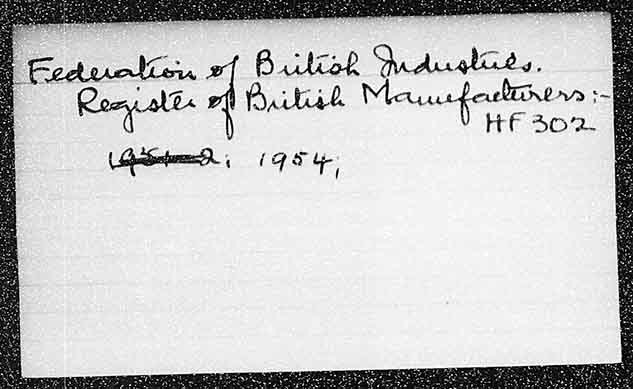 Federation of British Industries.
Register of British Manufacturers:-
HF 302
1951-2; 1954;